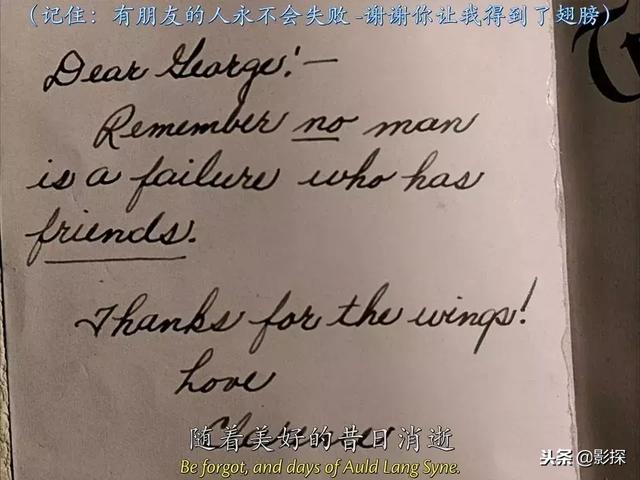 (记住：有朋友的人永不会失败 -谢谢你让我得到了翅膀)
Dear George:—
Remember no man
is a failure who has
friends.
Thanks for the wings!
Love
随着美好的昔日消逝
Be forgot, and days of Auld Lang Syne.
头条 @影探